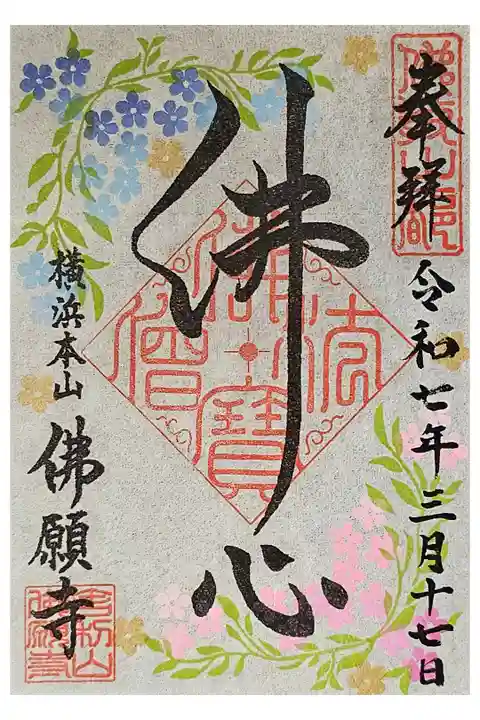 奉拜
令和七年三月十七日
佛心
佛
法
僧
寶
横浜本山
佛願寺